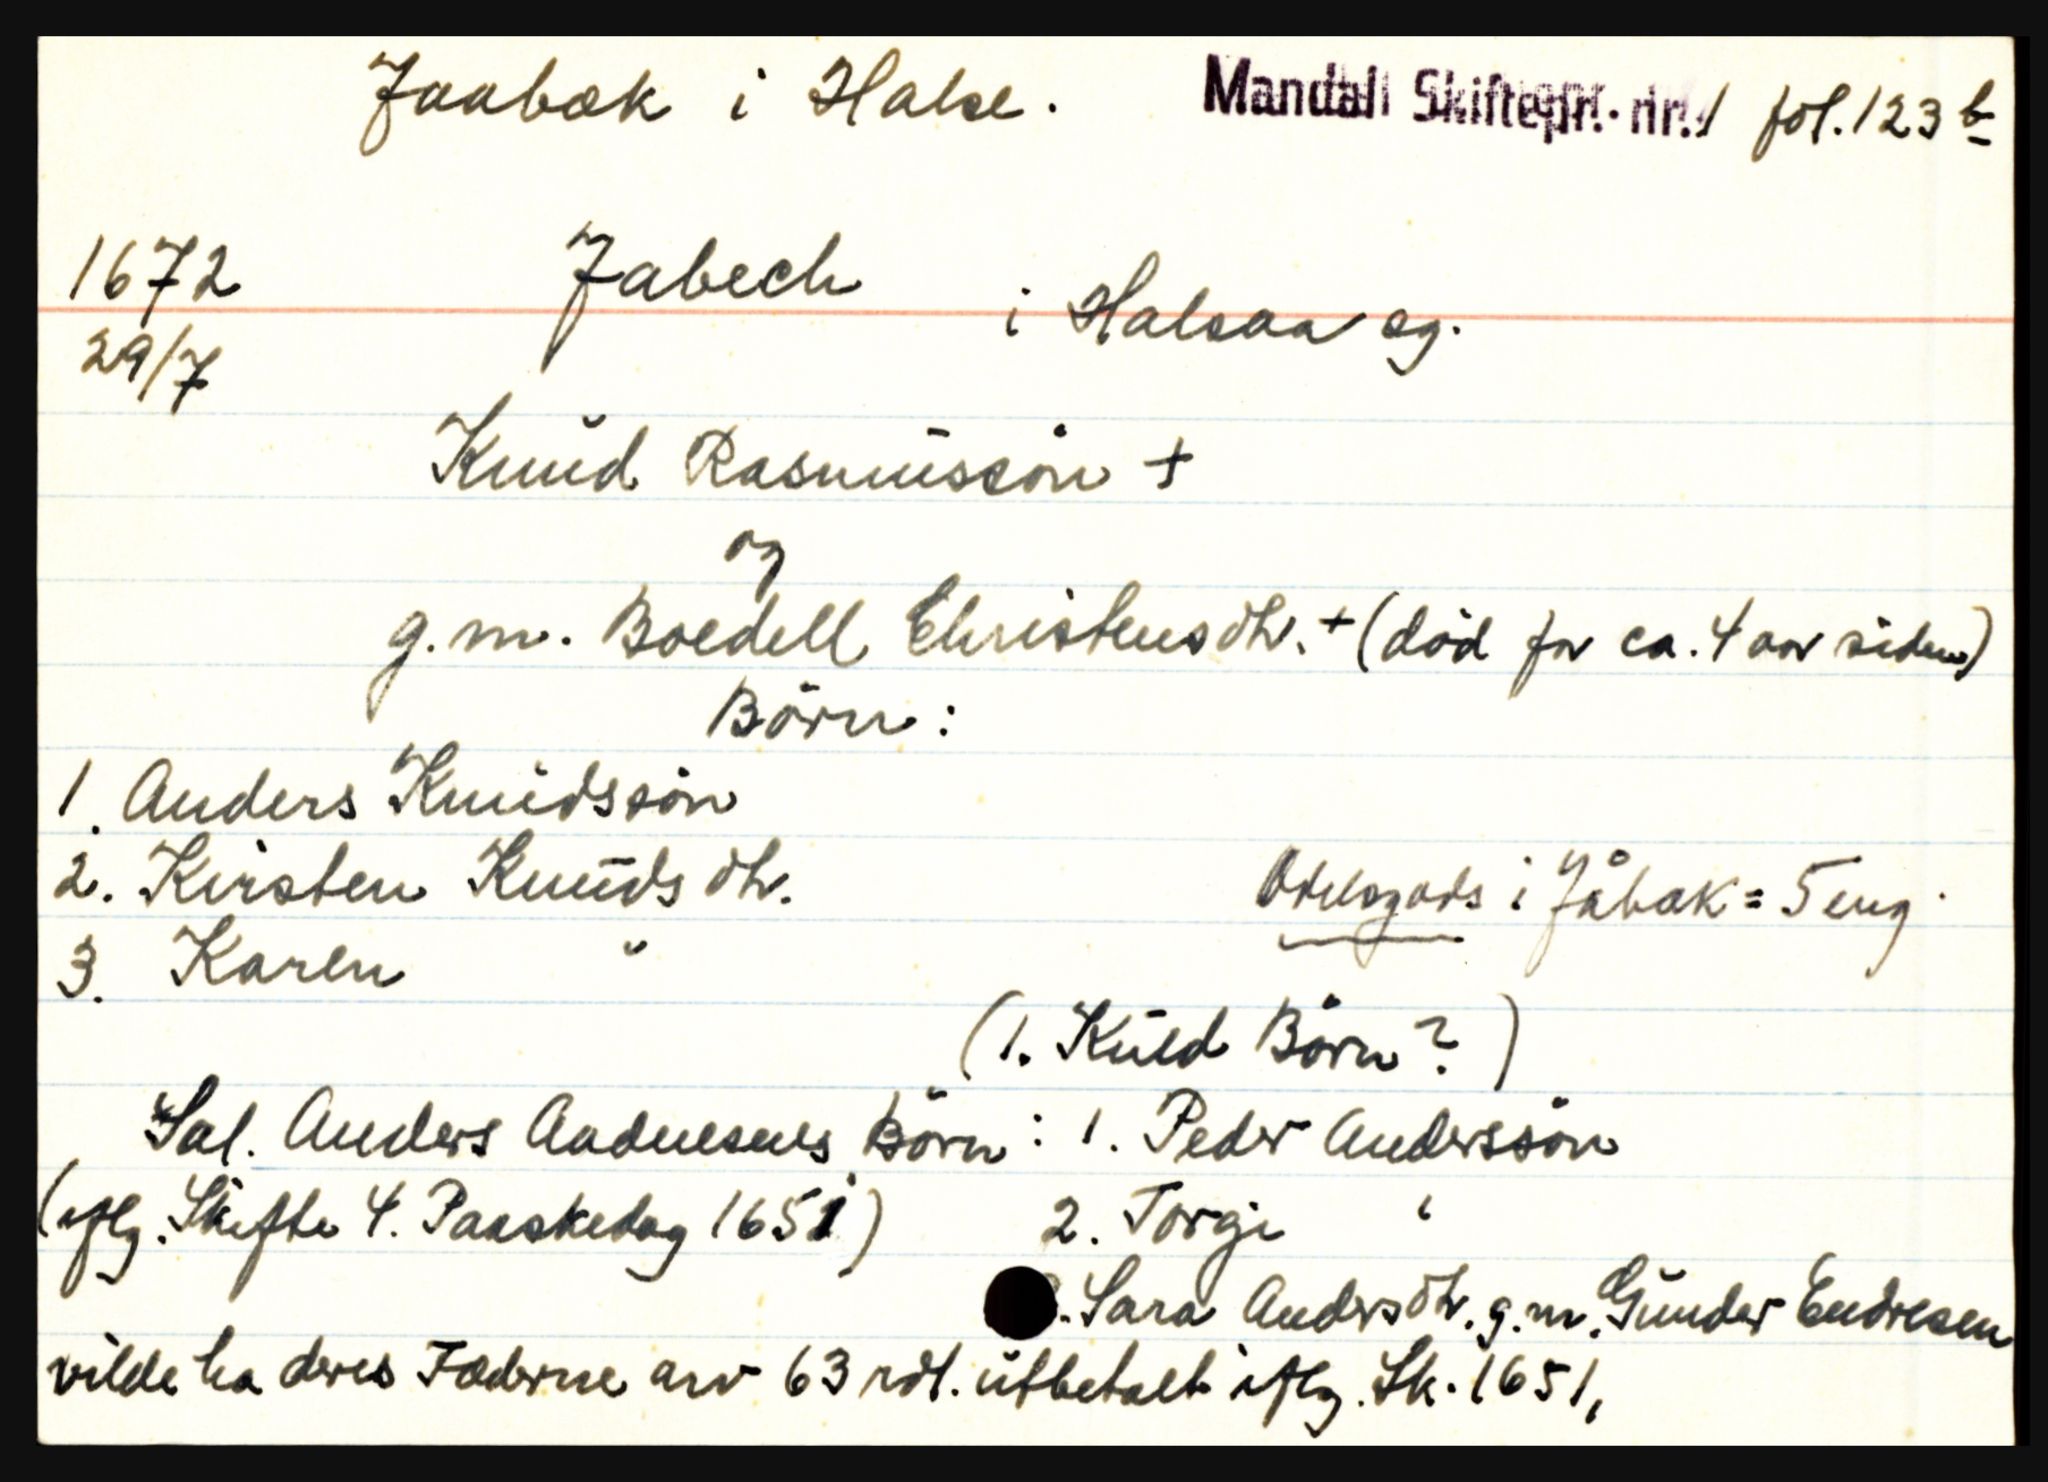 Jaabæk i Halse. Mandall Skiftepr. nr. 1 fol. 123 b
1672 Jabech i Halsaa sg.
29/7
Knud Rasmussøn +
og
g.m. Boedell Christensdtr. + (død for ca. 4 aar siden)
Børn:
1. Anders Knudssøn
2. Kirsten Knudsdtr.
3. Karen "
Odelsgods i Jåbæk = 5 eng.
(1. Kuld Børn?)
Sal. Anders Aadnesens Børn: 1. Peder Anderssøn
(iflg. Skifte 4. Paaskedag 1651) 2. Torgje "
. Sara Andersdtr. g.m. Gunder Endresen
vilde ha deres Fæderne arv 63 rdl. utbetalt iflg. Sk. 1651,